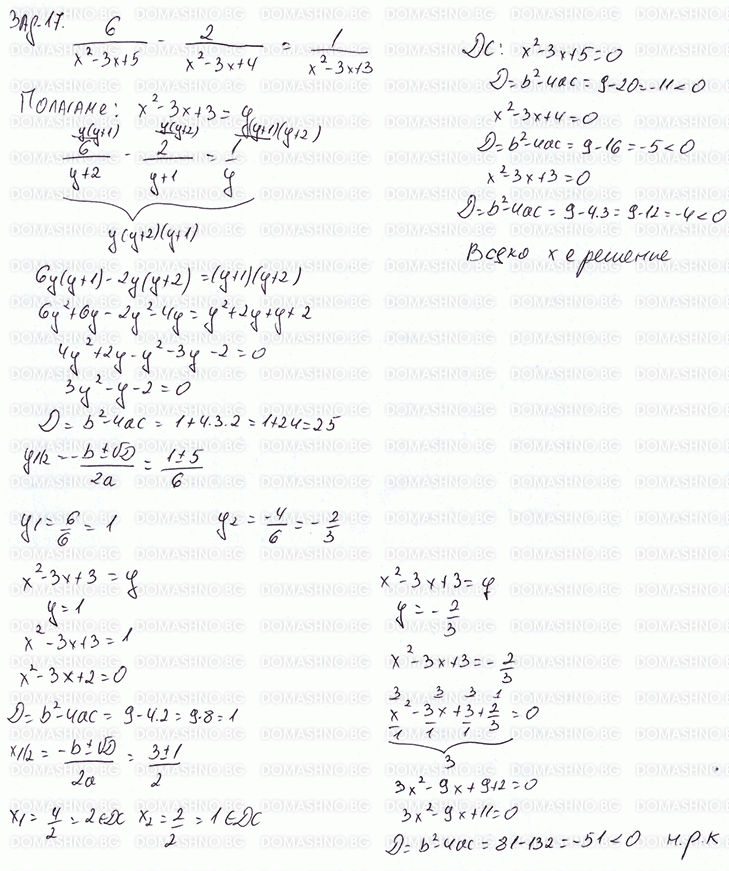 Зад. 17.
6/(x²-3x+5) - 2/(x²-3x+4) = 1/(x²-3x+3)
Полагаме: x²-3x+3 = y
y(y+1) y(y+2) (y+1)(y+2)
6/(y+2) - 2/(y+1) = 1/y
y(y+2)(y+1)
6y(y+1) - 2y(y+2) = (y+1)(y+2)
6y²+6y - 2y²-4y = y²+2y+y+2
4y²+2y-y²-3y-2=0
3y²-y-2=0
D = b²-4ac = 1+4.3.2 = 1+24=25
y1/2 = (-b±√D)/2a = (1±5)/6
y1 = 6/6 = 1 y2 = -4/6 = -2/3
x²-3x+3 = y
y=1
x²-3x+3=1
x²-3x+2=0
D = b²-4ac = 9-4.2 = 9-8=1
x1/2 = (-b±√D)/2a = (3±1)/2
x1 = 4/2 = 2∈DC x2 = 2/2 = 1∈DC
DC: x²-3x+5=0
D = b²-4ac = 9-20 = -11<0
x²-3x+4=0
D = b²-4ac = 9-16 = -5<0
x²-3x+3=0
D = b²-4ac = 9-4.3 = 9-12 = -4<0
Всяко x е решение
x²-3x+3 = y
y = -2/3
x²-3x+3 = -2/3
3 3 3 1
x²/1 - 3x/1 + 3/1 + 2/3 = 0
3
3x²-9x+9+2=0
3x²-9x+11=0
D = b²-4ac = 81-132 = -51<0 н.р.к